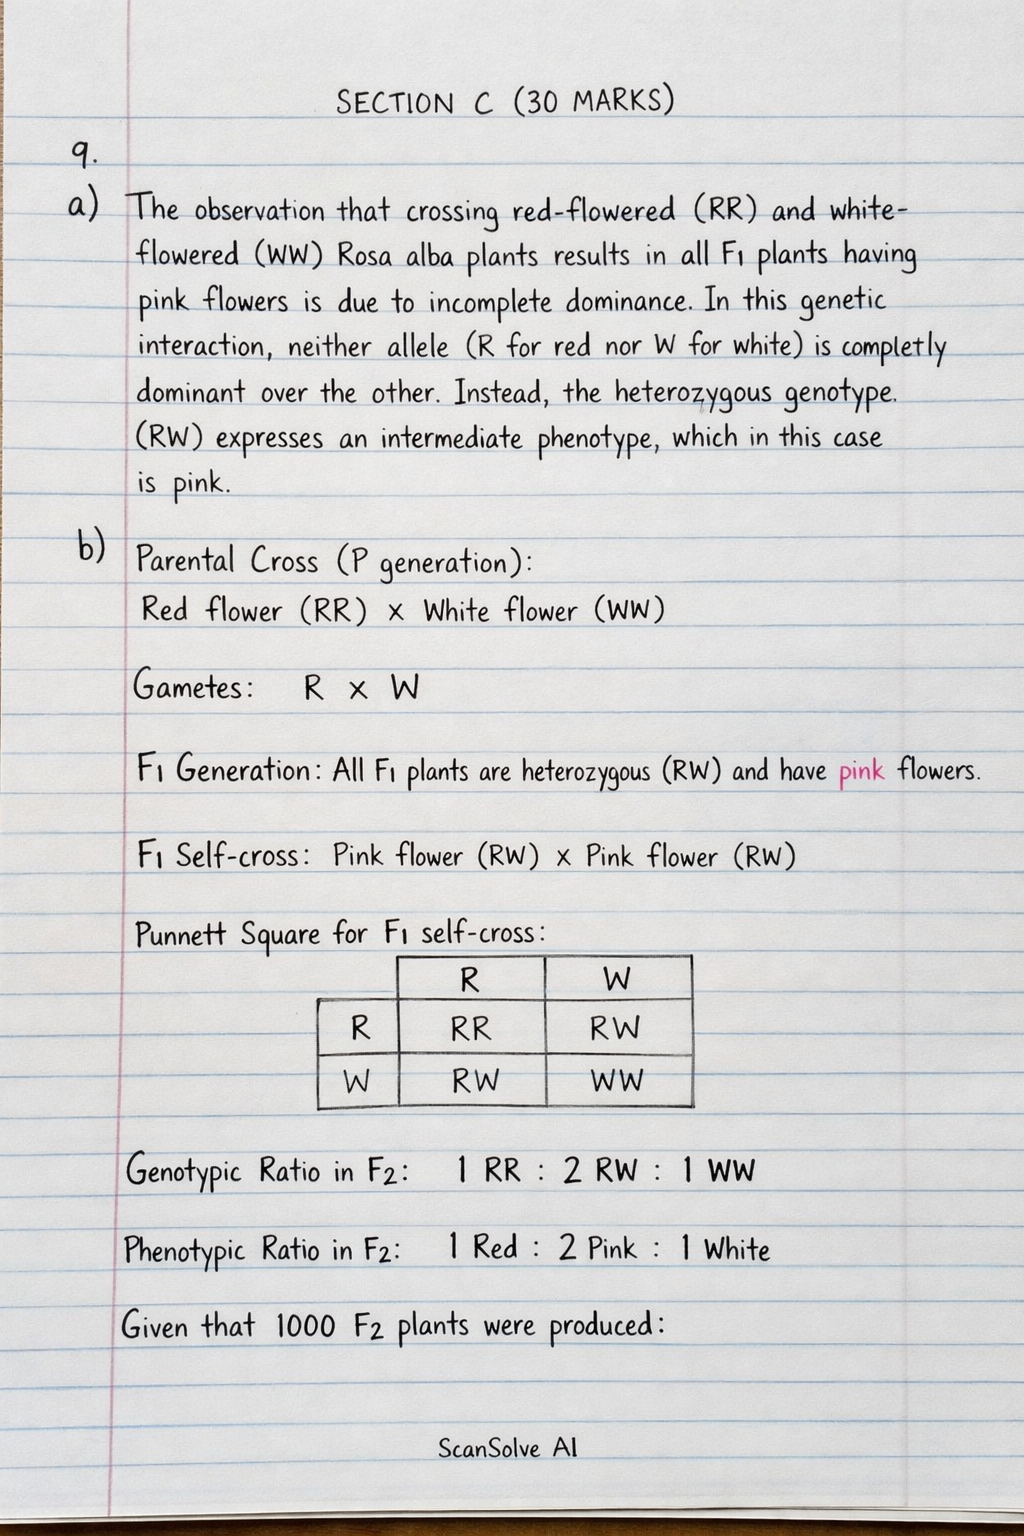 SECTION C (30 MARKS)
9.
a) The observation that crossing red-flowered (RR) and white-
flowered (WW) Rosa alba plants results in all F1 plants having
pink flowers is due to incomplete dominance. In this genetic
interaction, neither allele (R for red nor W for white) is completly
dominant over the other. Instead, the heterozygous genotype.
(RW) expresses an intermediate phenotype, which in this case
is pink.
b) Parental Cross (P generation):
Red flower (RR) x White flower (WW)
Gametes: R x W
F1 Generation: All F1 plants are heterozygous (RW) and have pink flowers.
F1 Self-cross: Pink flower (RW) x Pink flower (RW)
Punnett Square for F1 self-cross:
R W
R RR RW
W RW WW
Genotypic Ratio in F2: 1 RR : 2 RW : 1 WW
Phenotypic Ratio in F2: 1 Red : 2 Pink : 1 White
Given that 1000 F2 plants were produced:
ScanSolve AI